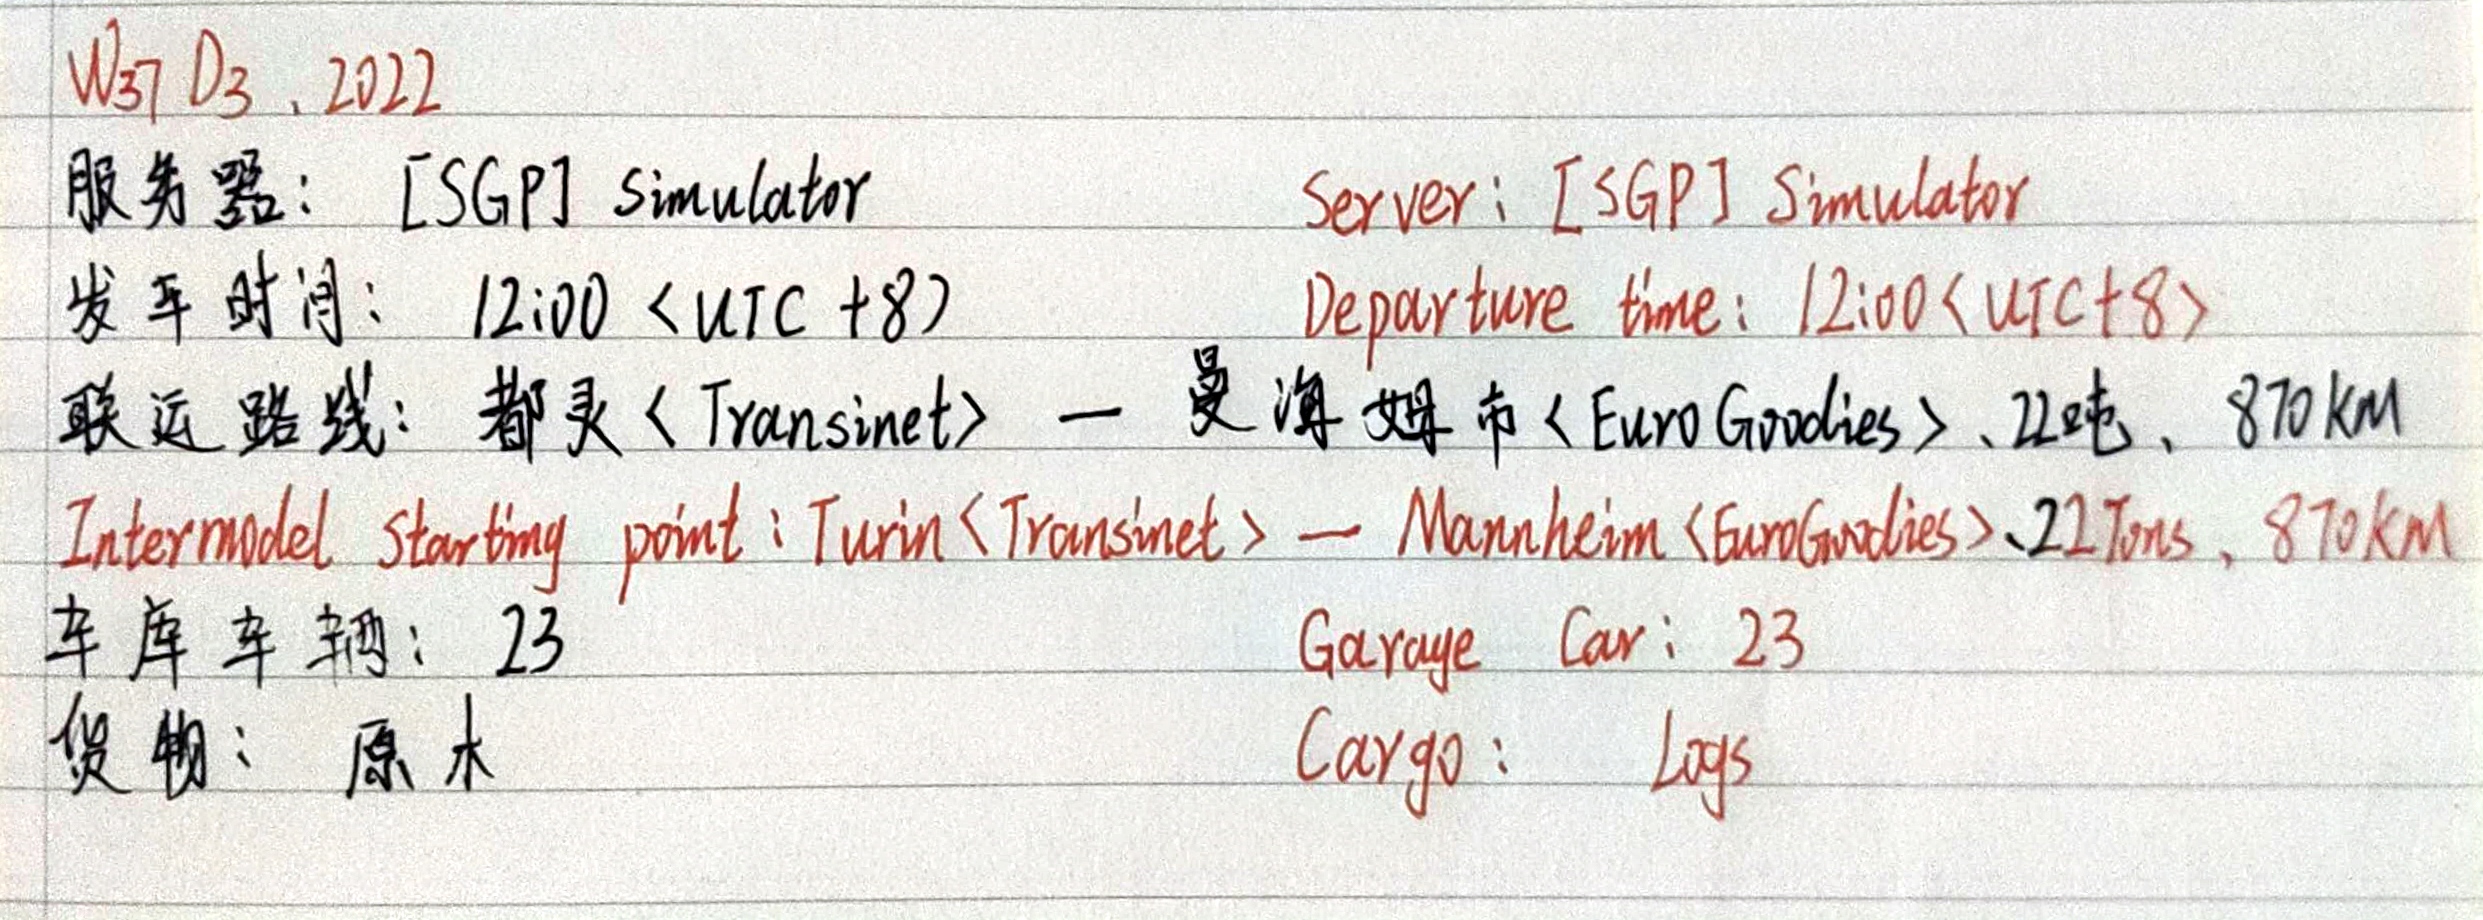 W37 D3、2022
服务器: [SGP] Simulator Server: [SGP] Simulator
发车时间: 12:00 <UTC +8> Departure time: 12:00<UTC+8>
联运路线: 都灵<Transinet> — 曼海姆市<EuroGoodies>、22吨、870KM
Intermodel Starting point: Turin<Transinet> — Mannheim<EuroGoodies>、22Tons、870KM
车库车辆: 23 Garage Car: 23
货物: 原木 Cargo: Logs